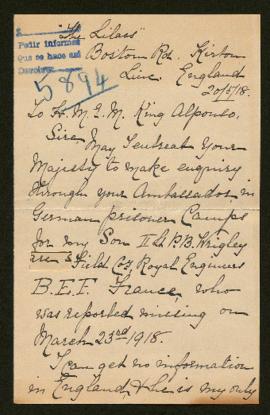 "The Lilacs"
Pedir informes
Boston Rd. Kirton
Linc. England
5894
20/5/18.
To H.M. King Alfonso,
Sire
May I entreat Your
Majesty to make enquiry
through your Ambassador in
German prisoner Camps
for my Son II Lt P.B. Wrigley
Field Coy Royal Engineers
B.E.F. France, who
was reported missing on
March 23rd 1918.
I can get no information
in England, & he is my only